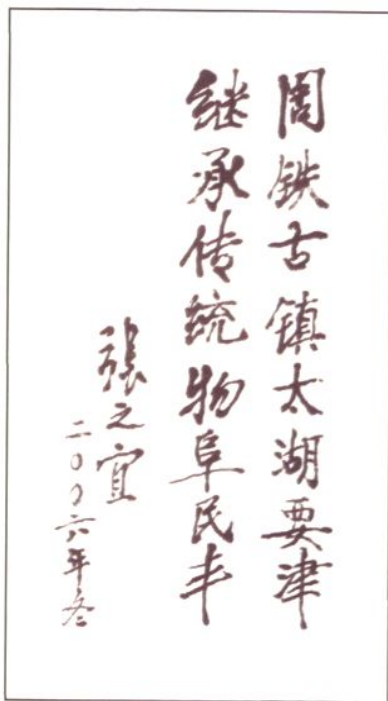 周铁古镇太湖要津
继承传统物阜民丰
張之宜
二〇〇六年冬